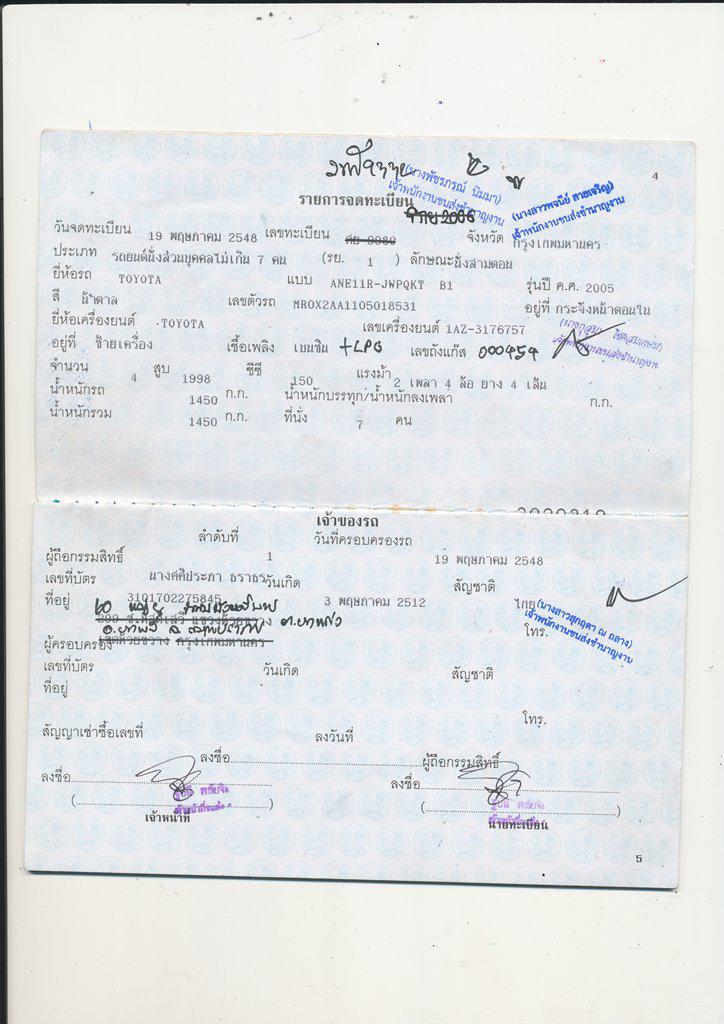 4
(นางพัชรภรณ์ นิมมา)
เจ้าพนักงานขนส่งชำนาญงาน
(นางสาวพจนีย์ สายเจริญ)
เจ้าพนักงานขนส่งชำนาญงาน
รายการจดทะเบียน
วันจดทะเบียน 19 พฤษภาคม 2548 เลขทะเบียน ศย 9080 จังหวัด กรุงเทพมหานคร
ประเภท รถยนต์นั่งส่วนบุคคลไม่เกิน 7 คน (รย. 1 ) ลักษณะนั่งสามตอน
ยี่ห้อรถ TOYOTA แบบ ANE11R-JWPQKT B1 รุ่นปี ค.ศ. 2005
สี น้ำตาล เลขตัวรถ MROX2AA1105018531 อยู่ที่ กระจังหน้าตอนใน
ยี่ห้อเครื่องยนต์ .TOYOTA เลขเครื่องยนต์ 1AZ-3176757
อยู่ที่ ซ้ายเครื่อง เชื้อเพลิง เบนซิน +LPG เลขถังแก๊ส 000454
เจ้าพนักงานขนส่งชำนาญงาน
จำนวน 4 สูบ 1998 ซีซี 150 แรงม้า 2 เพลา 4 ล้อ ยาง 4 เส้น
น้ำหนักรถ 1450 ก.ก. น้ำหนักบรรทุก/น้ำหนักลงเพลา ก.ก.
น้ำหนักรวม 1450 ก.ก. ที่นั่ง 7 คน
เจ้าของรถ
ลำดับที่ 1 วันที่ครอบครองรถ 19 พฤษภาคม 2548
ผู้ถือกรรมสิทธิ์ นางศศิประภา ธราธร
เลขที่บัตร 3101702275845 วันเกิด 3 พฤษภาคม 2512 สัญชาติ ไทย
ที่อยู่
(นางสาวสุกฤตา ณ ถลาง)
เจ้าพนักงานขนส่งชำนาญงาน
เขตห้วยขวาง กรุงเทพมหานคร โทร.
ผู้ครอบครอง
เลขที่บัตร วันเกิด สัญชาติ
ที่อยู่
โทร.
สัญญาเช่าซื้อเลขที่ ลงวันที่
ลงชื่อ ผู้ถือกรรมสิทธิ์
ลงชื่อ ลงชื่อ
( ) ( )
เจ้าหน้าที่ นายทะเบียน
5